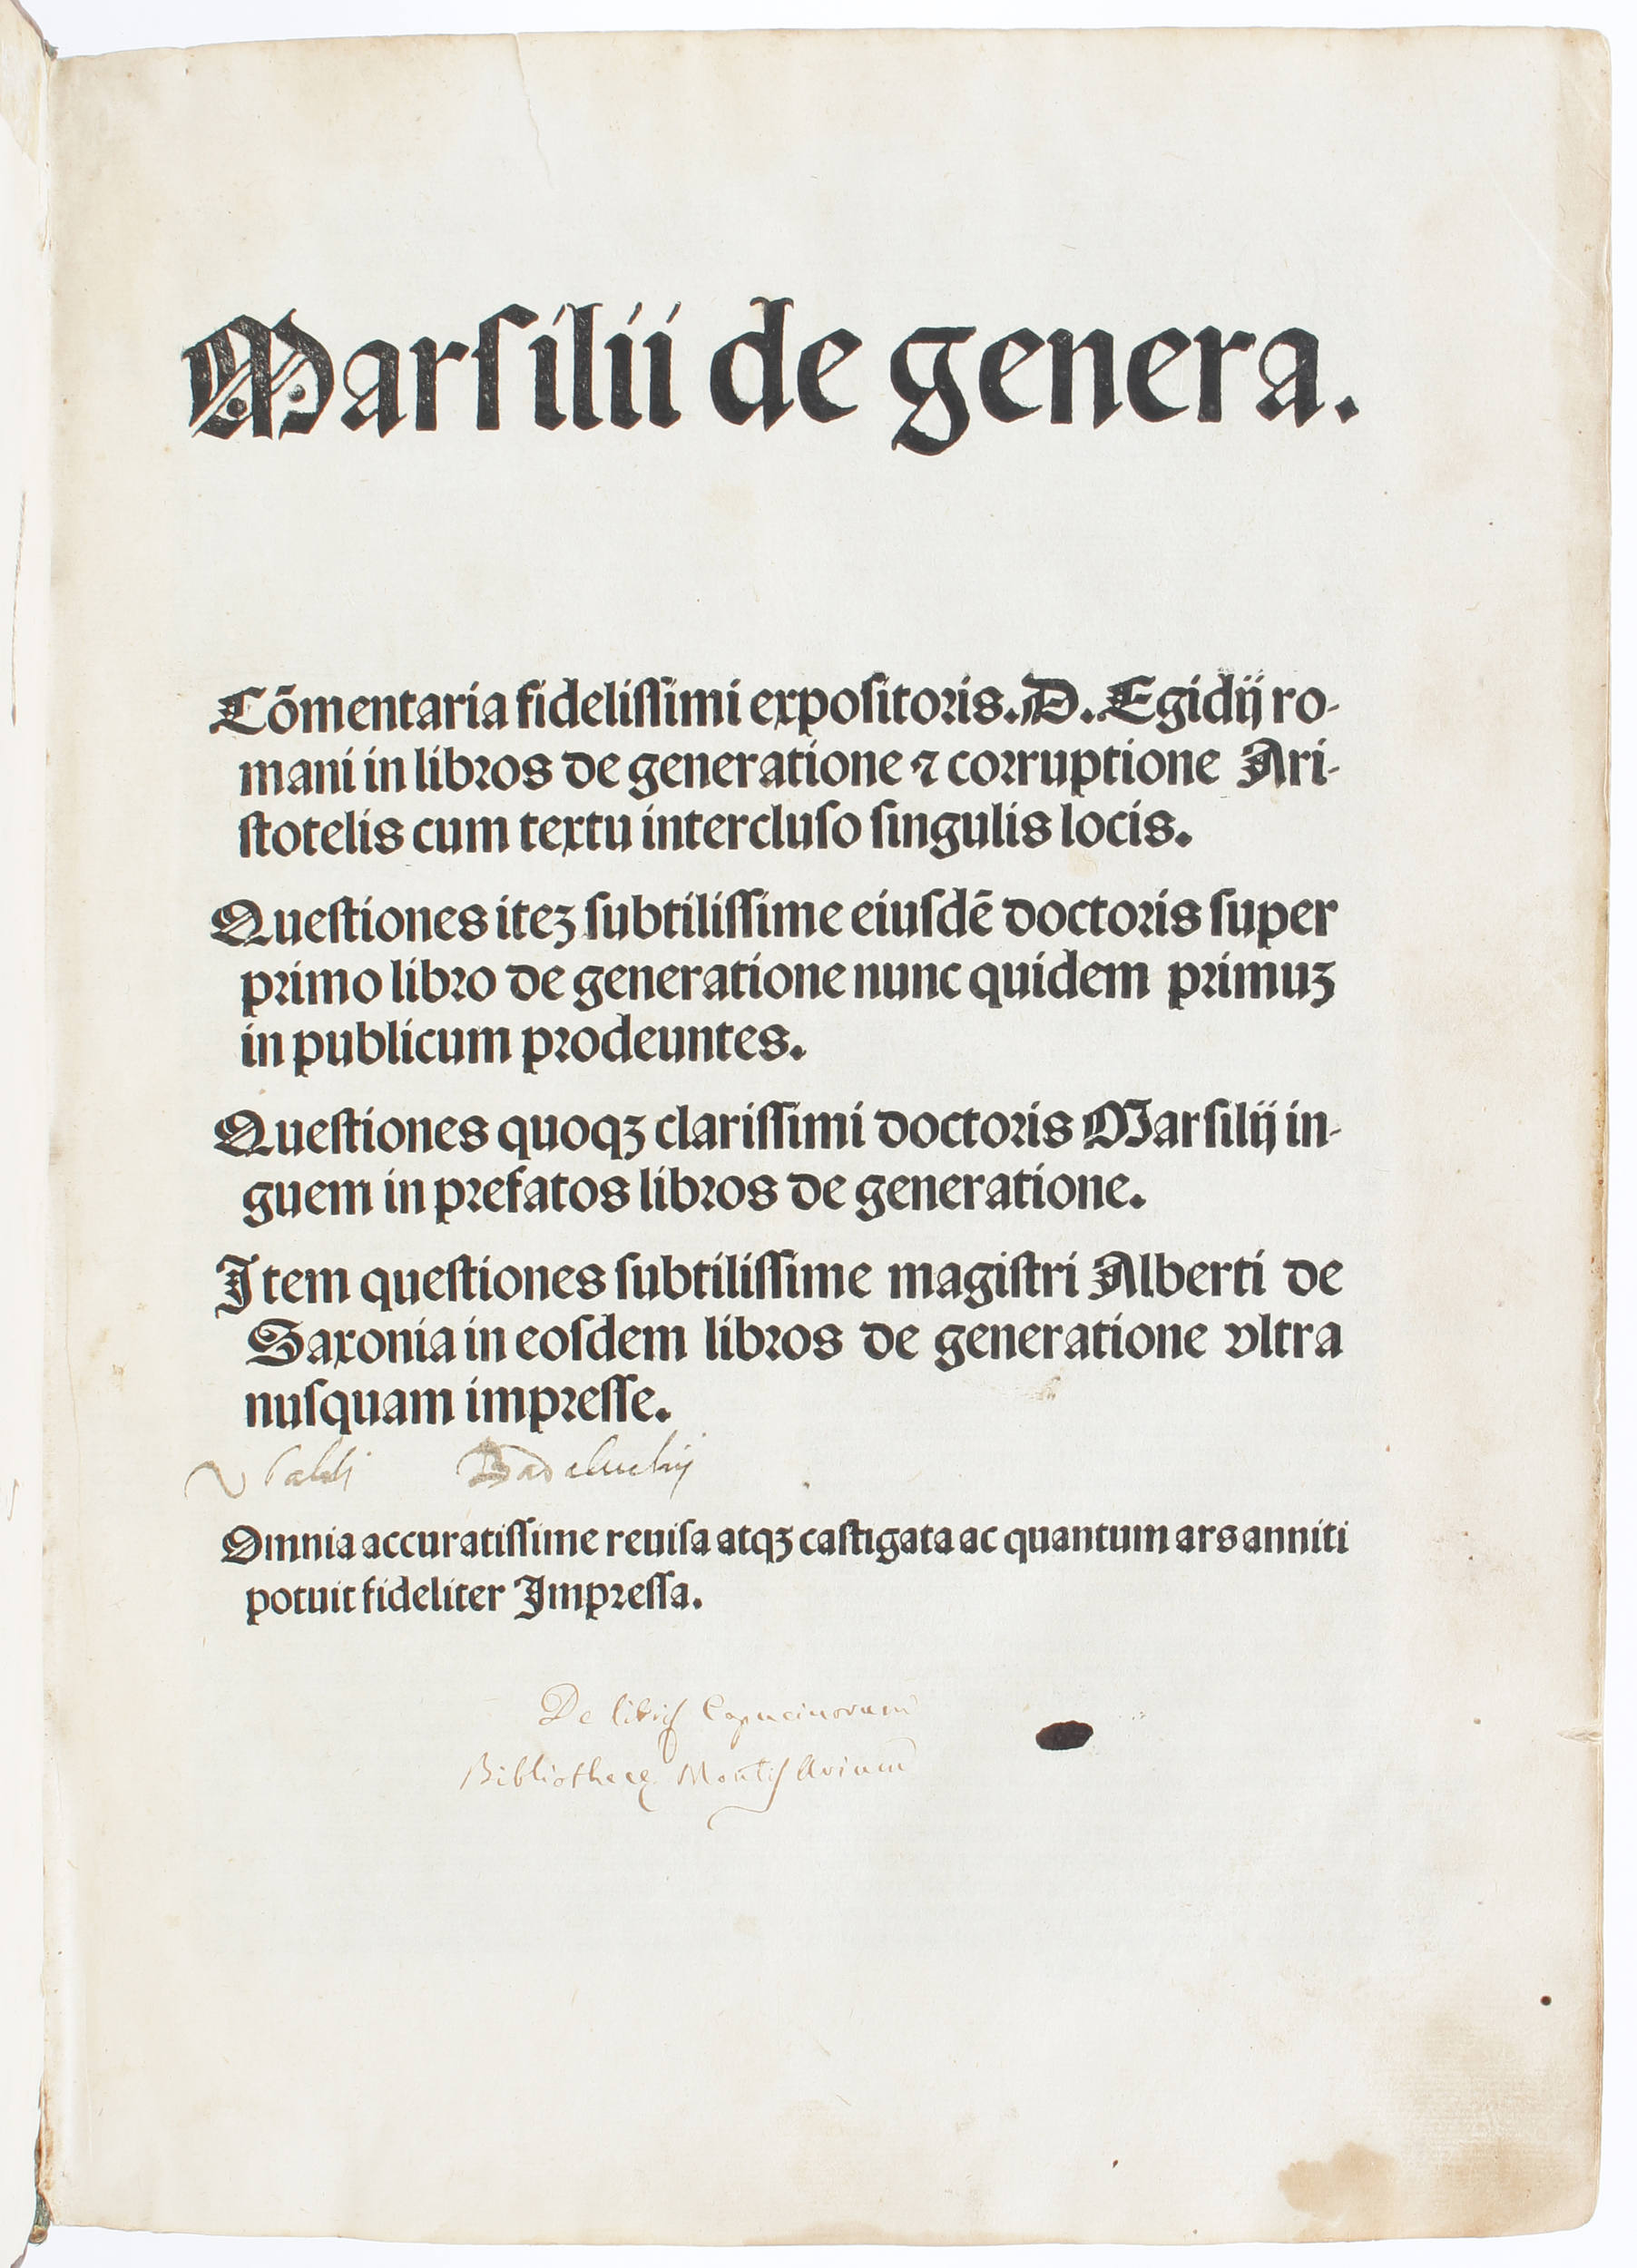 Marsilii de genera.
Cōmentaria fidelissimi expositoris. D. Egidij ro-
mani in libros de generatione ⁊ corruptione Ari-
stotelis cum textu intercluso singulis locis.
Questiones iteꝫ subtilissime eiusdē doctoris super
primo libro de generatione nunc quidem primuꝫ
in publicum prodeuntes.
Questiones quoqꝫ clarissimi doctoris Marsilij in-
guem in prefatos libros de generatione.
Item questiones subtilissime magistri Alberti de
Saxonia in eosdem libros de generatione vltra
nusquam impresse.
Omnia accuratissime reuisa atqꝫ castigata ac quantum ars anniti
potuit fideliter Impressa.
De libris Capucinorum
Bibliothecę Montis